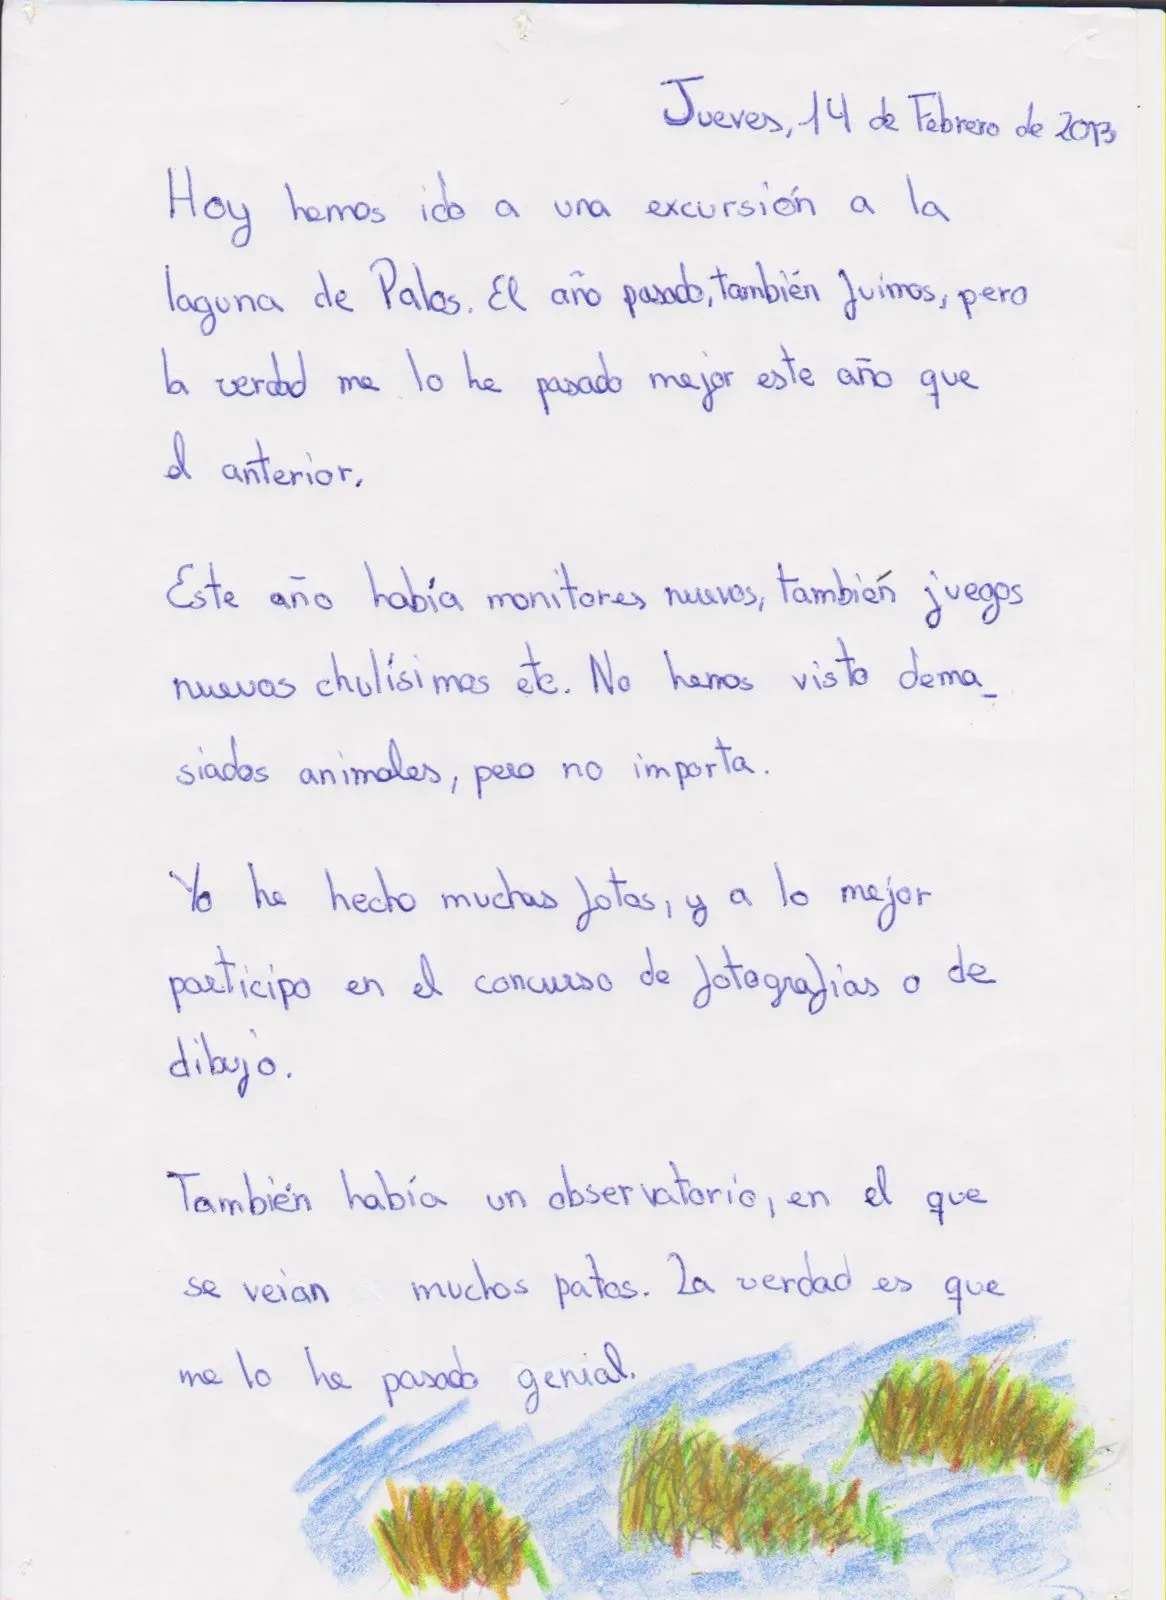 Jueves, 14 de Febrero de 2013
Hoy hemos ido a una excursión a la
laguna de Palos. El año pasado, también fuimos, pero
la verdad me lo he pasado mejor este año que
el anterior.
Este año había monitores nuevos, también juegos
nuevos chulísimos etc. No hemos visto dema_
siados animales, pero no importa.
Yo he hecho muchas fotos, y a lo mejor
participo en el concurso de fotografías o de
dibujo.
También había un observatorio, en el que
se veían muchos patos. La verdad es que
me lo he pasado genial.